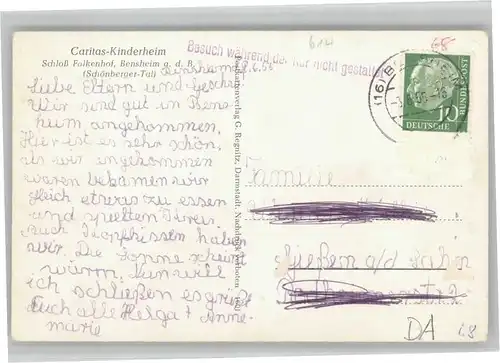 Caritas-Kinderheim
Schloß Falkenhof, Bensheim a. d. B.
(Schönberger-Tal)
Besuch während der Kur nicht gestattet
Bensheim
Liebe Eltern und Geschw.
Wir sind gut in Bens
heim angekommen.
Hier ist es sehr schön,
als wir angekommen
waren bekamen wir
gleich etwas zu essen
und spielten
auch haben
wir. Die Sonne scheint
warm. Nun will
ich schließen es grüßt
Euch alle Helga + Anne-
marie
Ansichtskartenverlag G. Regnitz, Darmstadt; Nachdruck verboten
614
68
(16)
10
DEUTSCHE
BUNDESPOST
Familie
Gießen a/d Lahn
DA